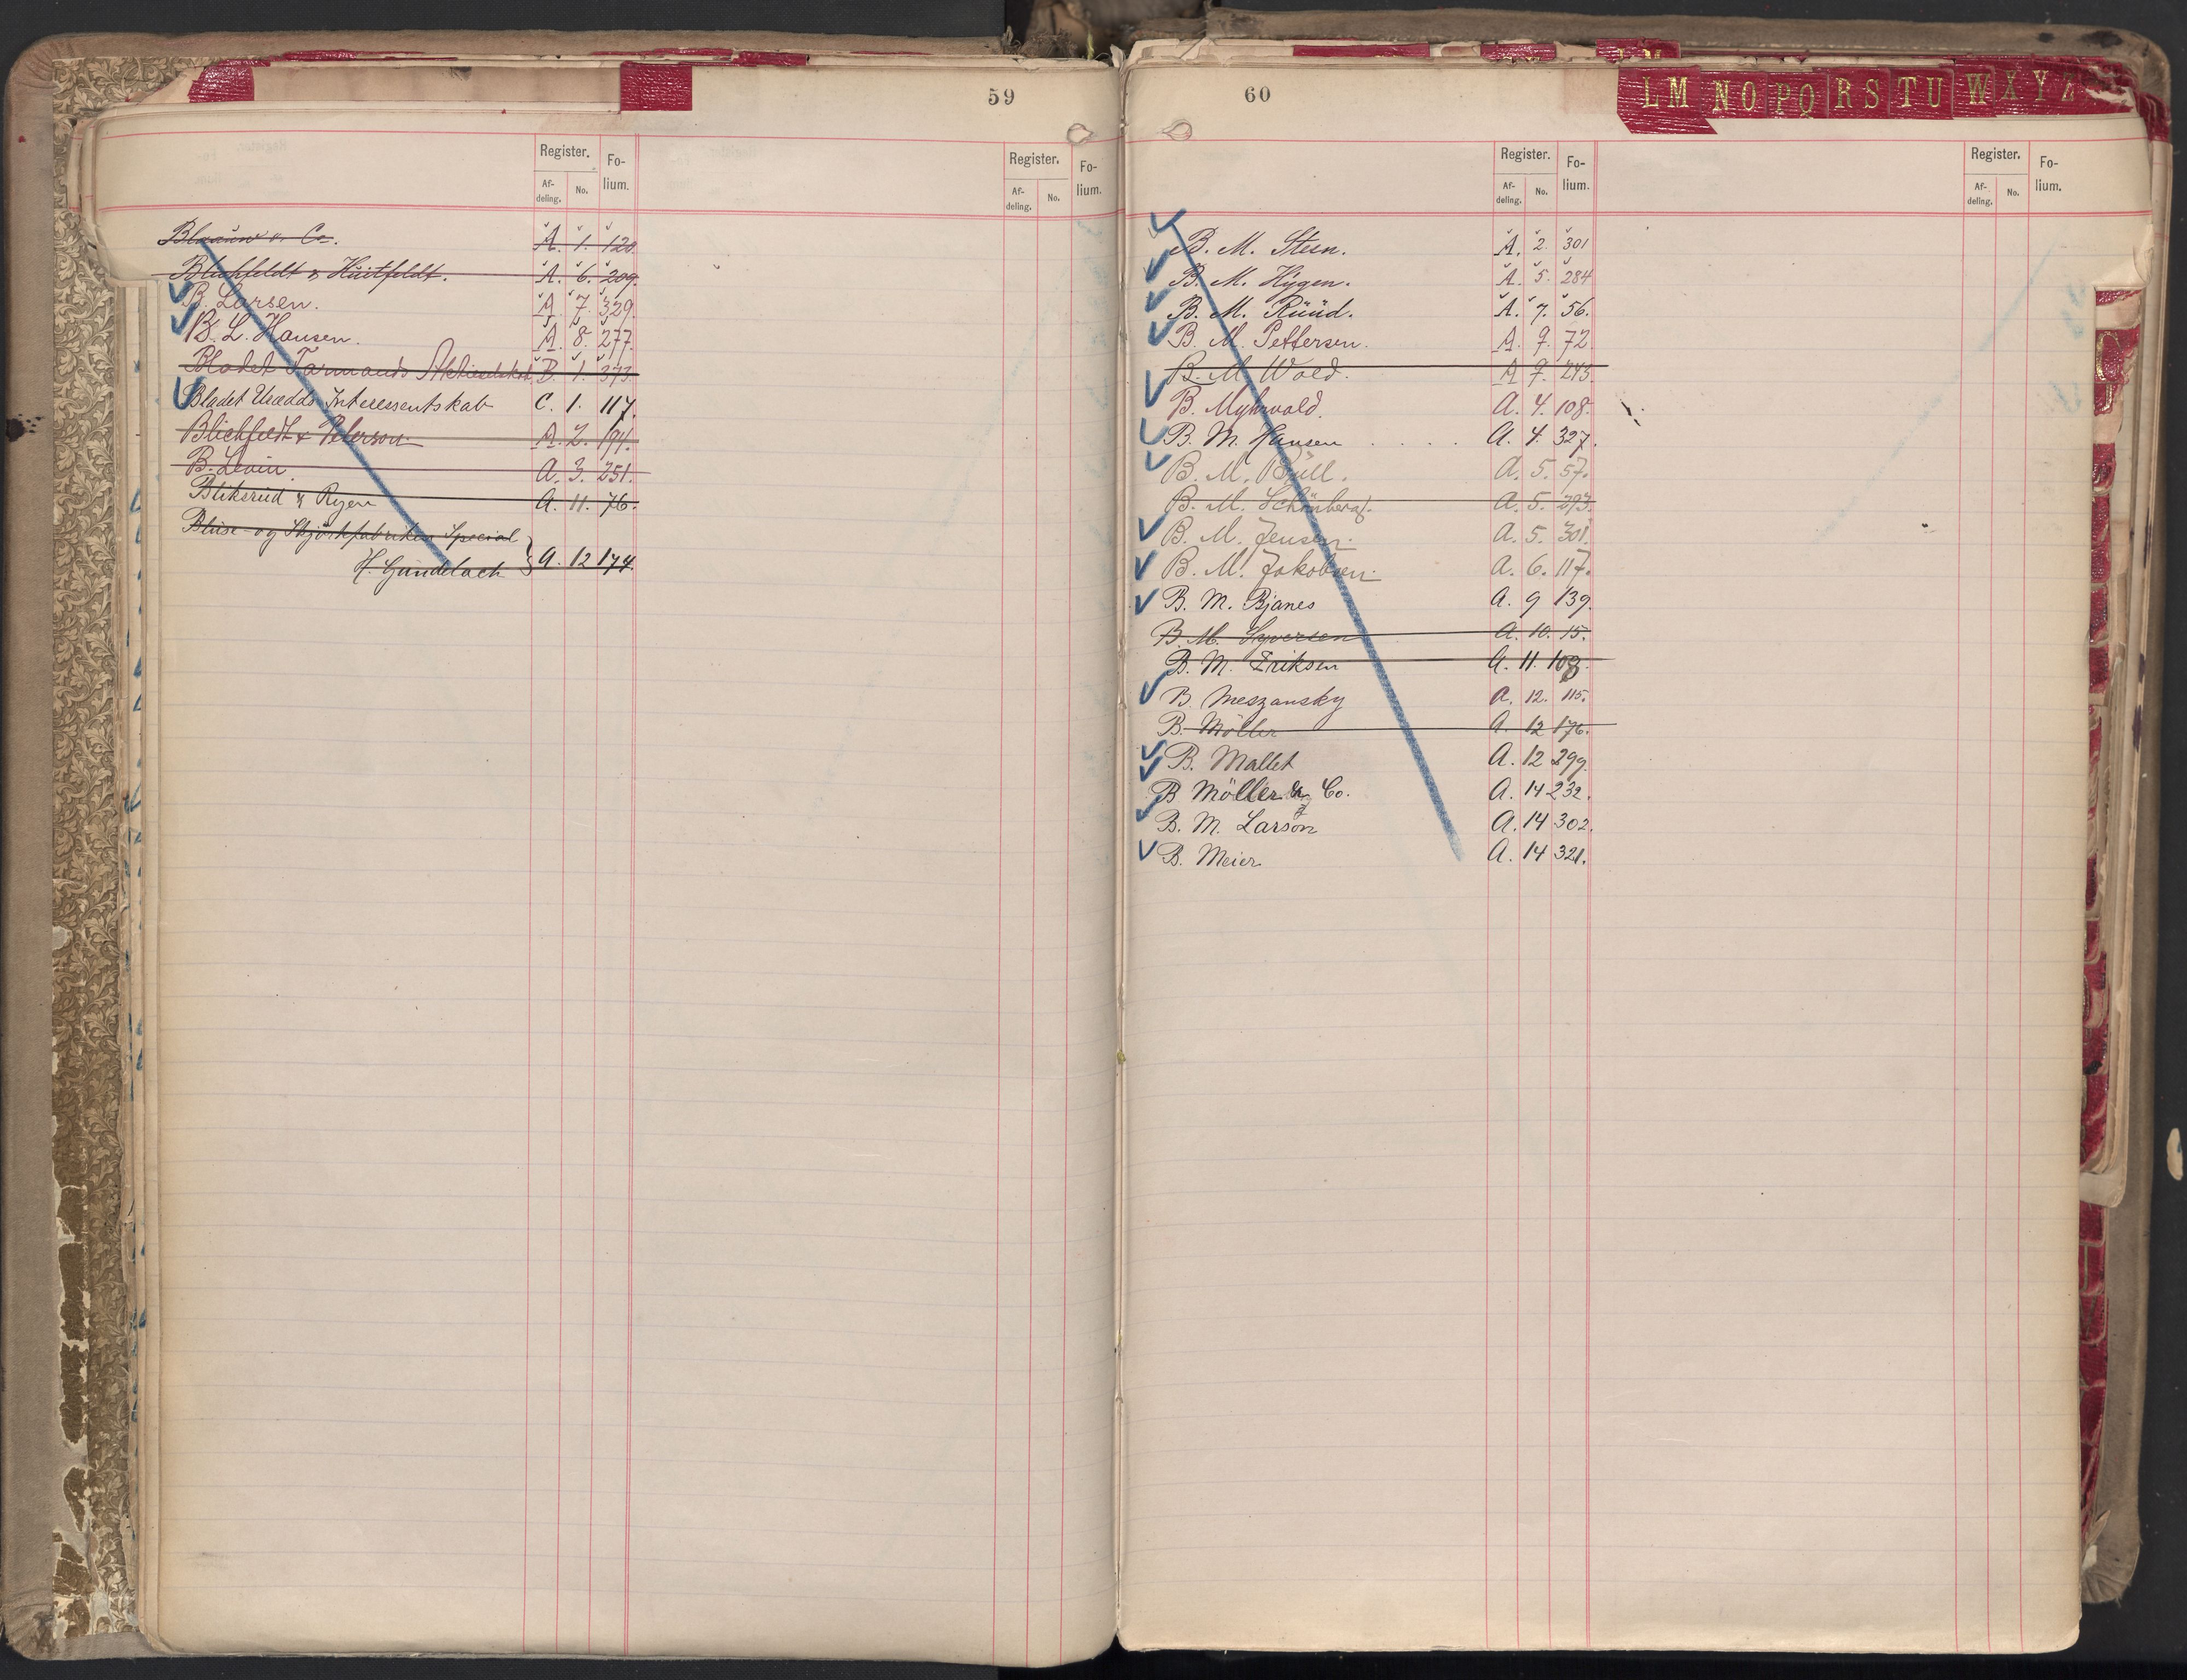 59
Register. Fo-
lium.
Af-
deling. No.
Register. Fo-
lium.
Af-
deling. No.
Blaauw & Co. A. 1. 120.
Blichfeldt & Huitfeldt. A. 6. 209.
B. Larsen. A. 7. 329.
B. L. Hansen. A. 8. 277.
Bladet Farmands Aktieselskab B. 1. 373.
Bladet Urædds Interessentskab C. 1. 117.
Blichfeldt & Peterson A. 2. 194.
B. Levin A. 3. 251.
Bliksrud & Ryen A. 11. 76.
Bluse- og Skjørtfabriken Special
H. Gundelach A. 12 174.
60
L M N O P Q R S T U W X Y Z
Register. Fo-
lium.
Af-
deling. No.
Register. Fo-
lium.
Af-
deling. No.
B. M. Steen. A. 2. 301
B. M. Hygen. A. 5. 284
B. M. Ruud. A. 7. 56.
B. M. Pettersen. A. 9. 72
B. M. Wold. A. 9. 243.
B. Myhrvold. A. 4. 108.
B. M. Hansen . . . . A. 4. 327.
B. M. Bull. A. 5. 57.
B. M. Schönberg. A. 5. 293.
B. M. Jensen. A. 5. 301.
B. M. Jakobsen. A. 6. 117.
B. M. Bjanes A. 9 139.
B. M. Syversen A. 10. 15.
B. M. Eriksen A. 11. 108.
B. Meszansky A. 12. 115.
B. Möller A. 12 176.
B. Mallet A. 12 299.
B Möller & Co. A. 14 232.
B. M. Larson A. 14 302.
B. Meier A. 14 321.